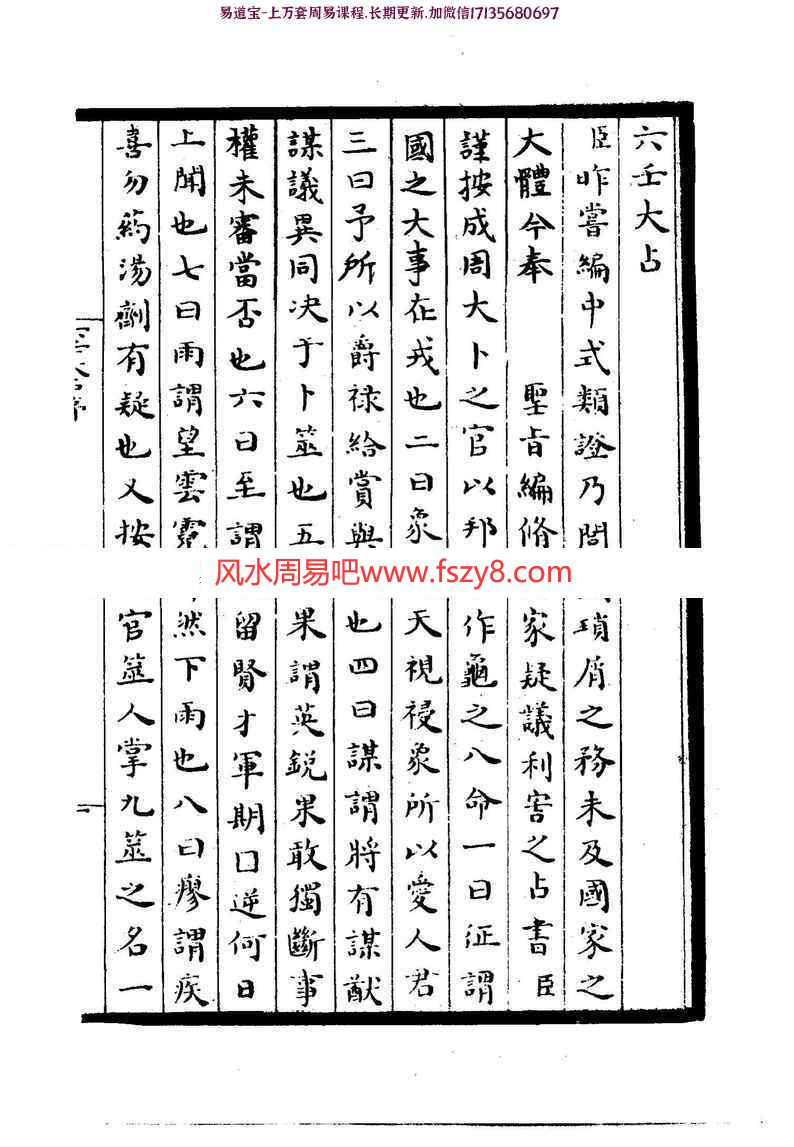 易道宝-上万套周易课程.长期更新.加微信17135680697
六壬大占
臣昨嘗編中式類證乃問瑣屑之務未及國家之
大體今奉 聖旨編脩家疑議利害之占書臣
謹按成周大卜之官以邦作龜之八命一曰征謂
國之大事在戎也二曰象天視祲象所以愛人君
三曰予所以爵祿給賞與也四曰謀謂將有謀猷
謀議異同决于卜筮也五果謂英銳果敢獨斷事
權未審當否也六曰至謂留賢才軍期口逆何日
上聞也七曰雨謂望雲霓然下雨也八曰瘳謂疾
喜勿葯湯劑有疑也又按官筮人掌九筮之名一
风水周易吧www.fszy8.com